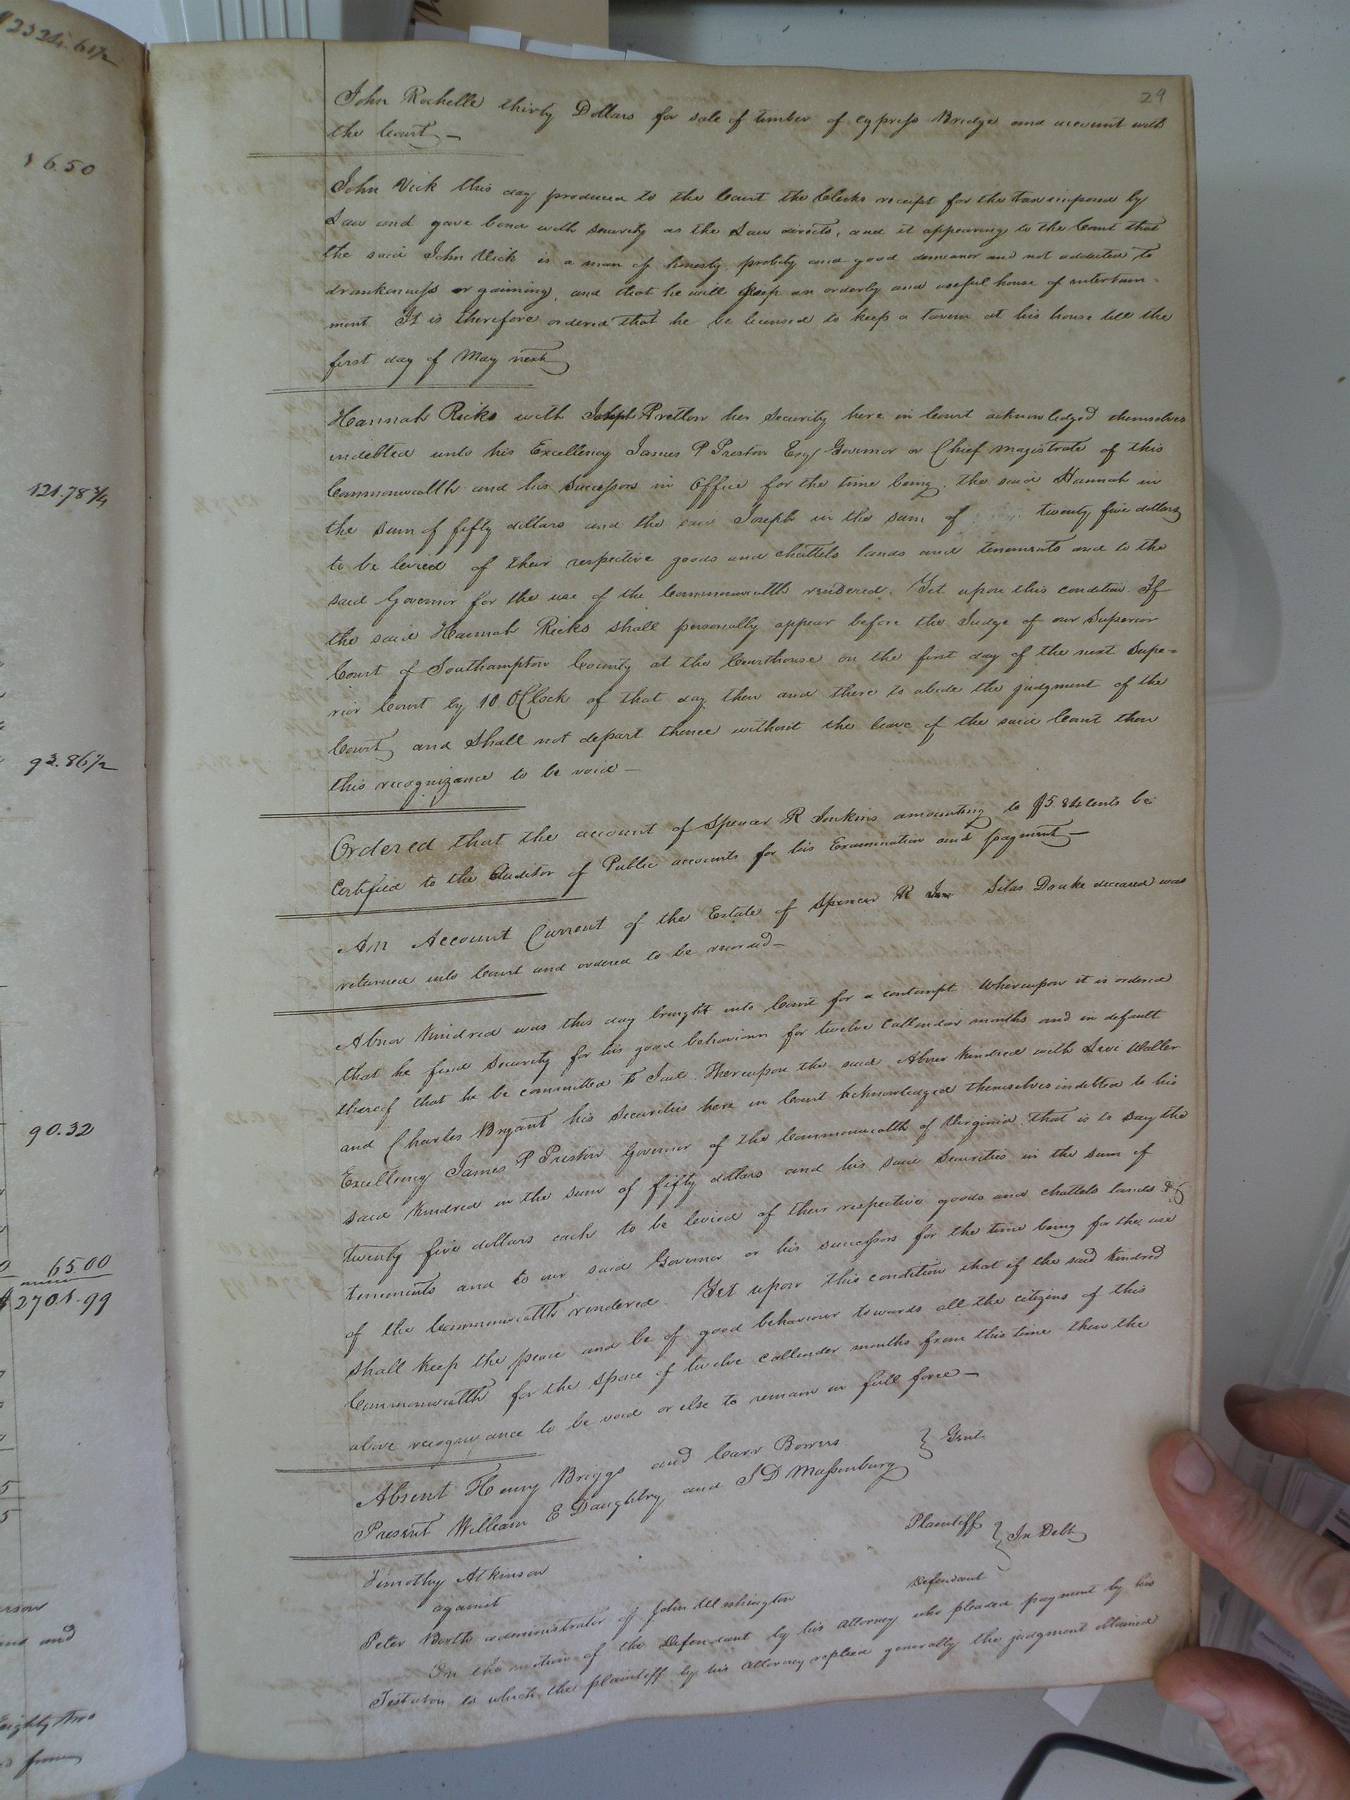 $2324.61½
$6.50
121.78¾
93.86½
90.32
65.00
$2701.99
and
Eighty two
29
John Rochelle thirty Dollars for sale of timber of Cypress Bridge and account with
the Court —
John Vick this day produced to the Court the Clerks receipt for the tax imposed by
Law and gave bond with security as the Law directs, and it appearing to the Court that
the said John Vick is a man of honesty probity and good demeanor and not addicted to
drunkenness or gaiming, and that he will keep an orderly and useful house of entertain-
ment It is therefore ordered that he be licensed to keep a tavern at his house till the
first day of May next
Hannah Ricks with Joseph Pretlow her Security here in Court acknowledged themselves
indebted unto his Excellency James P Preston Esq Governor or Chief magistrate of this
Commonwealth and his Successors in Office for the time being, the said Hannah in
the sum of fifty dollars and the said Joseph in the sum of twenty five dollars
to be levied of their respective goods and chattels lands and tenements and to the
said Governor for the use of the Commonwealth rendered. Yet upon this condition If
the said Hannah Ricks shall personally appear before the Judge of our Superior
Court of Southampton County at the Courthouse on the first day of the next Supe=
rior Court by 10 OClock of that day then and there to abide the judgment of the
Court, and shall not depart thence without the leave of the said Court then
this recognizance to be void —
Ordered that the account of Spencer R Jenkins amounting to $5.84 cents be
Certified to the Auditor of Public accounts for his Examination and payment —
An Account Current of the Estate of Spencer R Silas Drake deceased was
returned into Court and ordered to be record —
Abner Kindred was this day brought into Court for a contempt Whereupon it is ordered
that he find security for his good behaviour for twelve Callendar months and in default
thereof that he be committed to Jail. Thereupon the said Abner Kindred with Levi Waller
and Charles Bryant his Securities here in Court acknowledged themselves indebted to his
Excellency James P Preston Governor of the Commonwealth of Virginia that is to say the
said Kindred in the sum of fifty dollars and his said Securities in the sum of
twenty five dollars each to be levied of their respective goods and chattels lands &
tenements and to our said Governor or his successors for the time being for the use
of the Commonwealth rendered. Yet upon this condition that if the said Kindred
shall keep the peace and be of good behaviour towards all the citizens of this
Commonwealth for the space of twelve callender months from this time then the
above recognizance to be void or else to remain in full force —
Absent Henry Briggs and Carr Bowers } Gent.
Present William E Daughtry and J D Massenburg
Timothy Atkinson Plaintiff } In Debt
against
Peter Booth administrator of John Washington Defendant
On the motion of the Defendant by his attorney who pleaded payment by his
Testator to which the plaintiff by his Attorney replied generally the judgment obtained